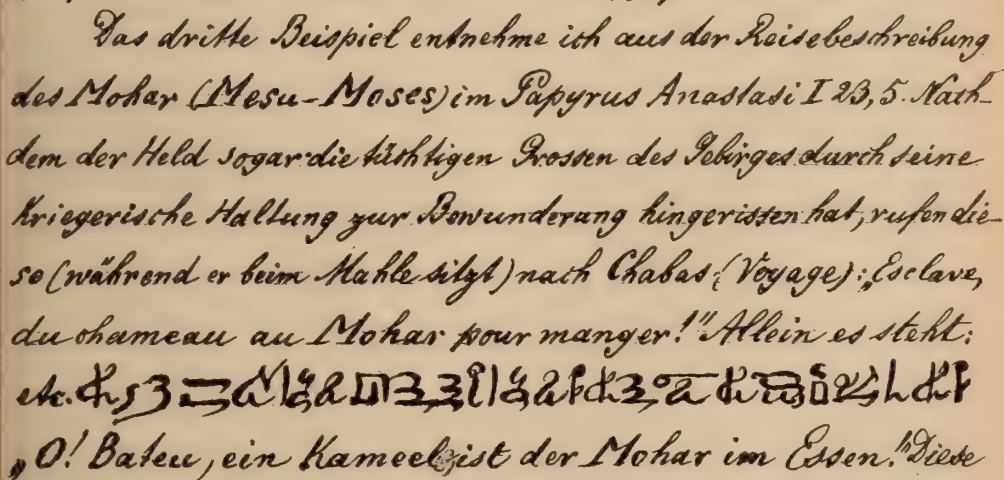 Das dritte Beispiel entnehme ich aus der Reisebeschreibung
des Mohar (Mesu-Moses) im Papyrus Anastasi I 23, 5. Nach-
dem der Held sogar die tüchtigen Grossen des Gebirges durch seine
kriegerische Haltung zur Bewunderung hingerissen hat, rufen die-
se (während er beim Mahle sitzt) nach Chabas (Voyage): „Esclave,
du chameau au Mohar pour manger!" Allein es steht:
etc.
„O! Bateu, ein Kameel ist der Mohar im Essen." Diese